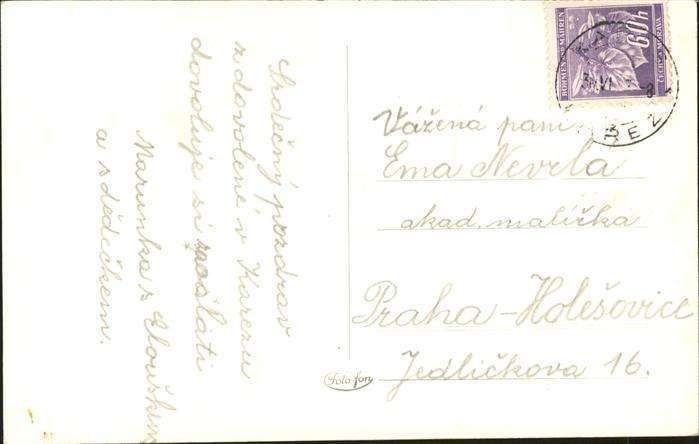 Srdečný pozdrav
z dovolené v Karezu
dovoluje si zaslati
Marunka z Eloušken
a s dědečkem.
Vážená paní
Ema Nevrla
akad. malířka
Praha-Holešovice
Jedličkova 16.
60h
BÖHMEN UND MÄHREN
ČECHY A MORAVA
Foto-fon